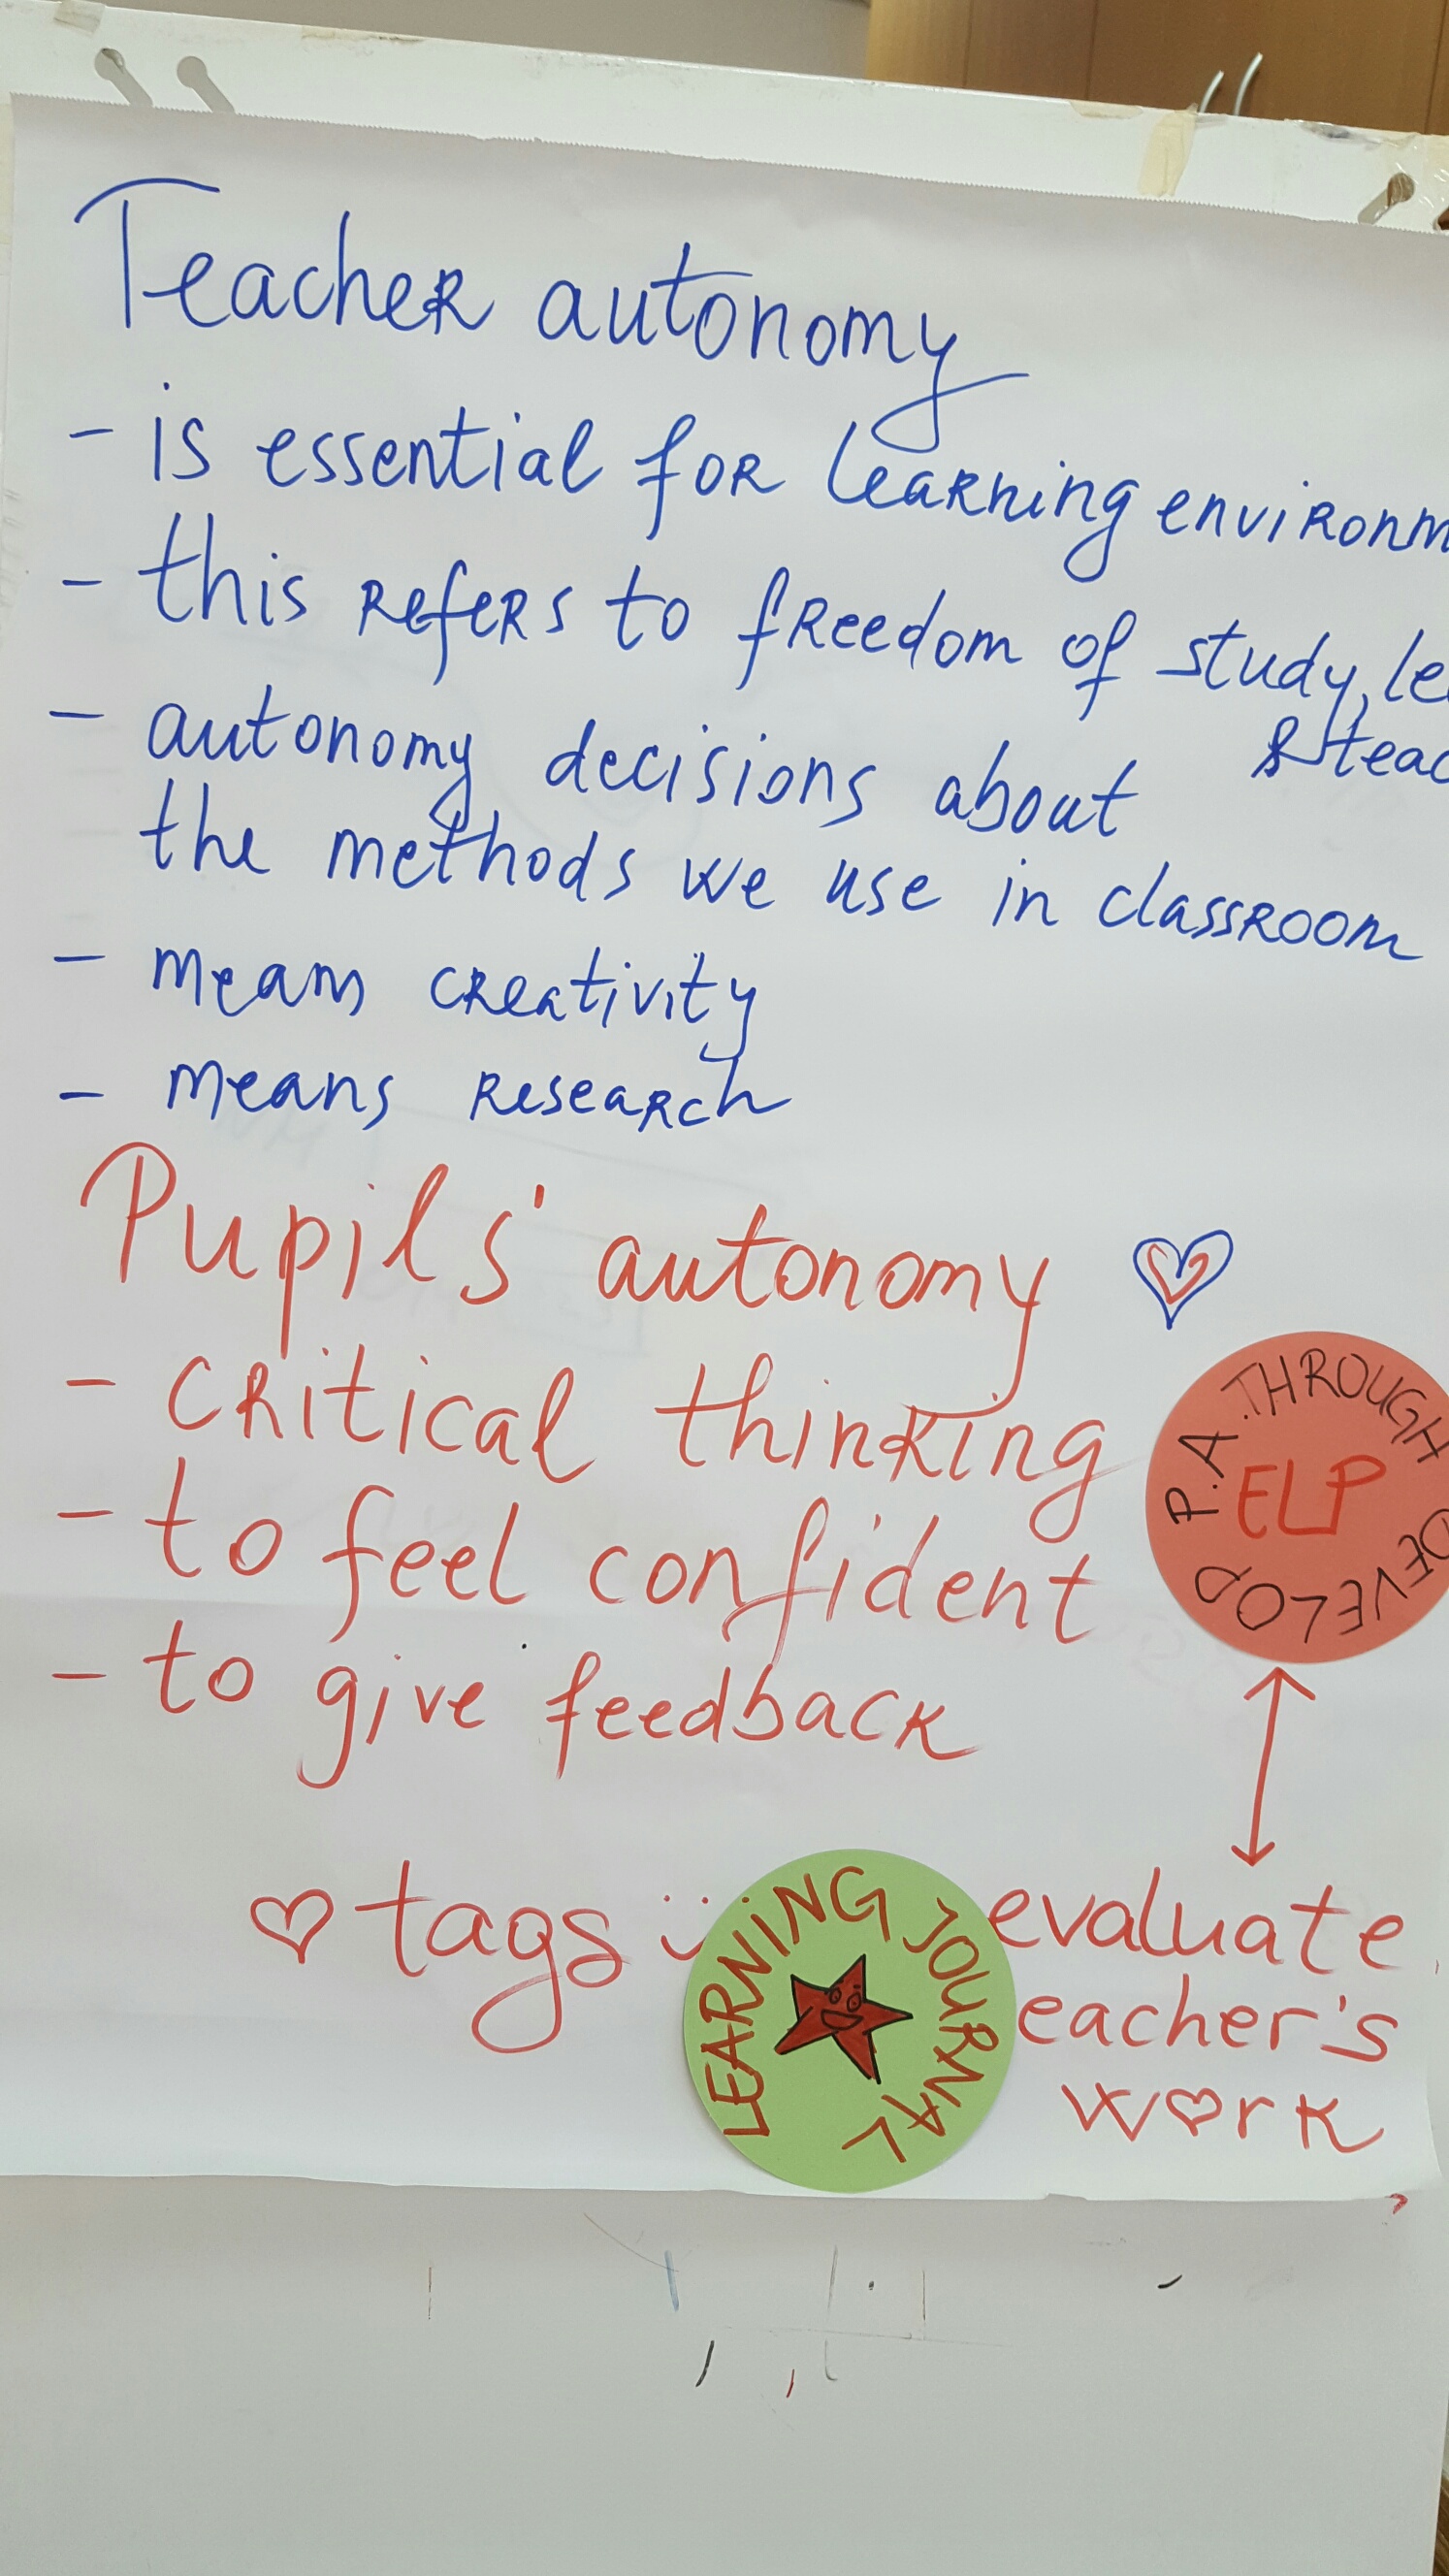 Teacher autonomy
- is essential for learning environm
- this refers to freedom of study, le
& teac
- autonomy decisions about
the methods we use in classroom
- means creativity
- means research
Pupils' autonomy
- critical thinking
- to feel confident
- to give feedback
DEVELOP P.A. THROUGH
ELP
tags
LEARNING JOURNAL
evaluate
eacher's
work